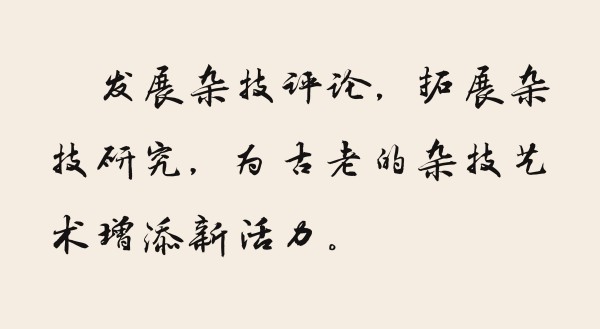 发展杂技评论，拓展杂
技研究，为古老的杂技艺
术增添新活力。